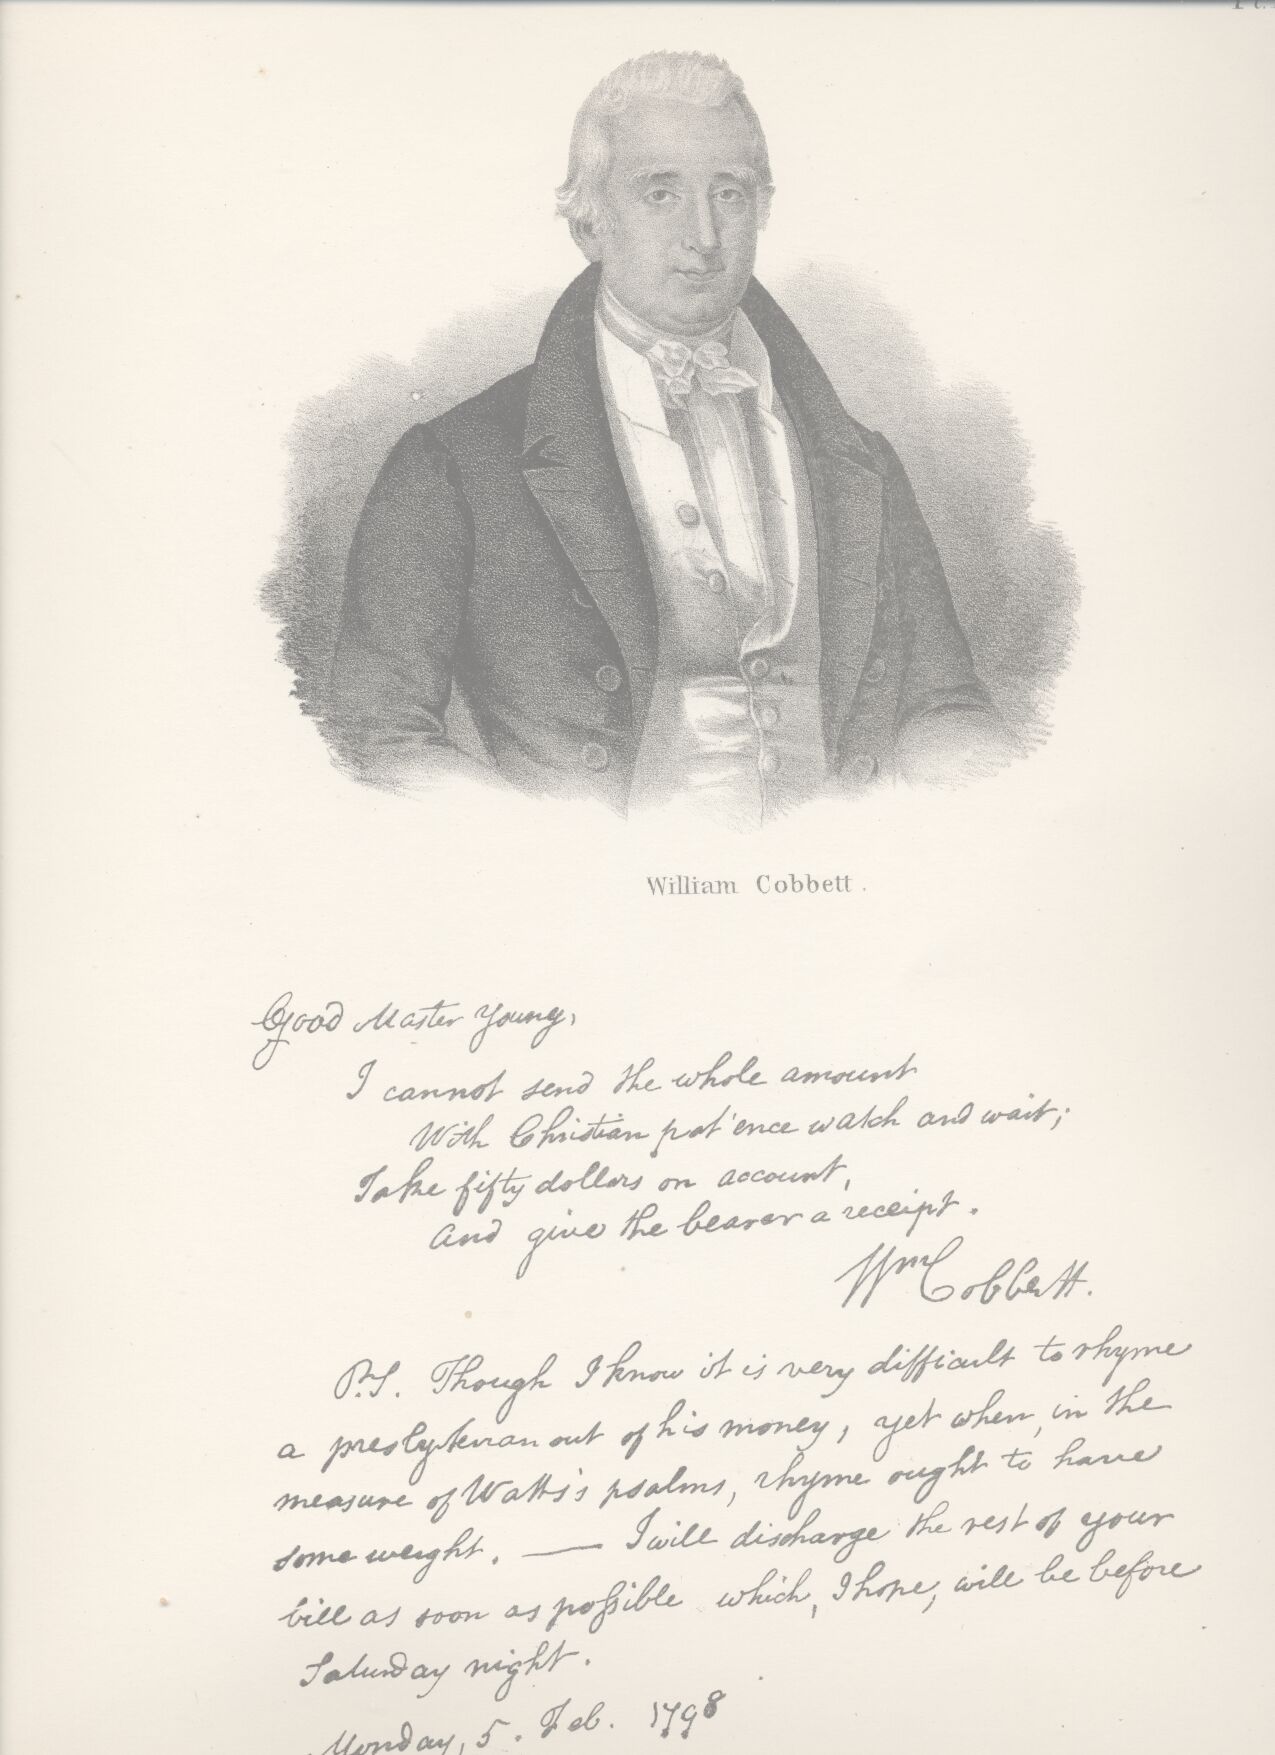 William Cobbett.
Good Master Young,
I cannot send the whole amount
With Christian pat'ence watch and wait;
Take fifty dollars on account,
And give the bearer a receipt.
Wm Cobbett.
P.S. Though I know it is very difficult to rhyme
a presbyterian out of his money, yet when, in the
measure of Watts's psalms, rhyme ought to have
some weight. — I will discharge the rest of your
bill as soon as poſsible which, I hope, will be before
Saturday night.
Monday, 5. Feb. 1798